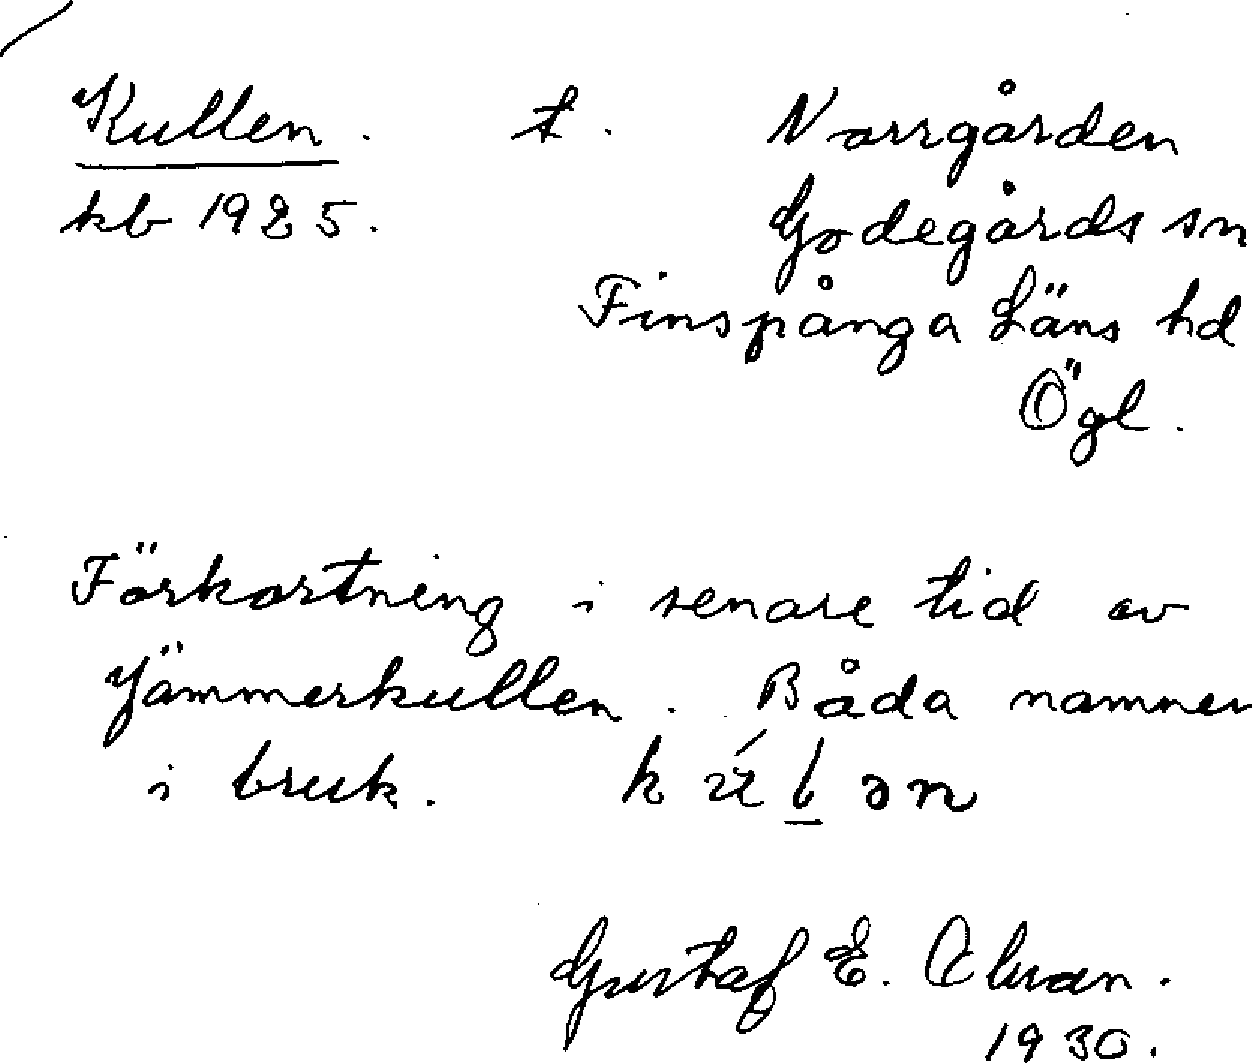 Kullen. t. Norrgården
kb 1925. Godegårds sn
Finspånga Läns hd
Ögl.
Förkortning i senare tid av
Jämmerkullen. Båda namnen
i bruk.
Gustaf E.
1930.